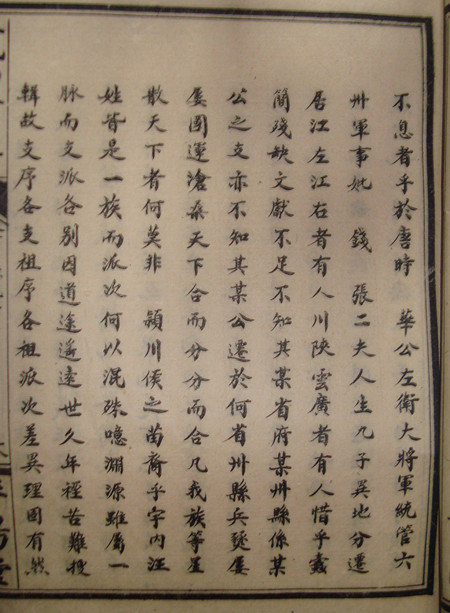 不息者乎於唐時　華公左衛大將軍統管六
州軍事妣　錢　張二夫人生九子異地分遷
居江左江右者有人川陝雲廣者有人惜乎蠹
簡殘缺文獻不足不知其某省府某州縣係某
公之支亦不知其某公遷於何省州縣兵燹屡
屡國運滄桑天下合而分分而合凡我族等星
散天下者何莫非　潁川侯之苗裔乎宇内汪
姓皆是一族而派次何以混殊噫淵源雖屬一
脉而支派各別因道途遥遠世久年裎苦難搜
輯故支序各支祖序各祖派次差異理固有然